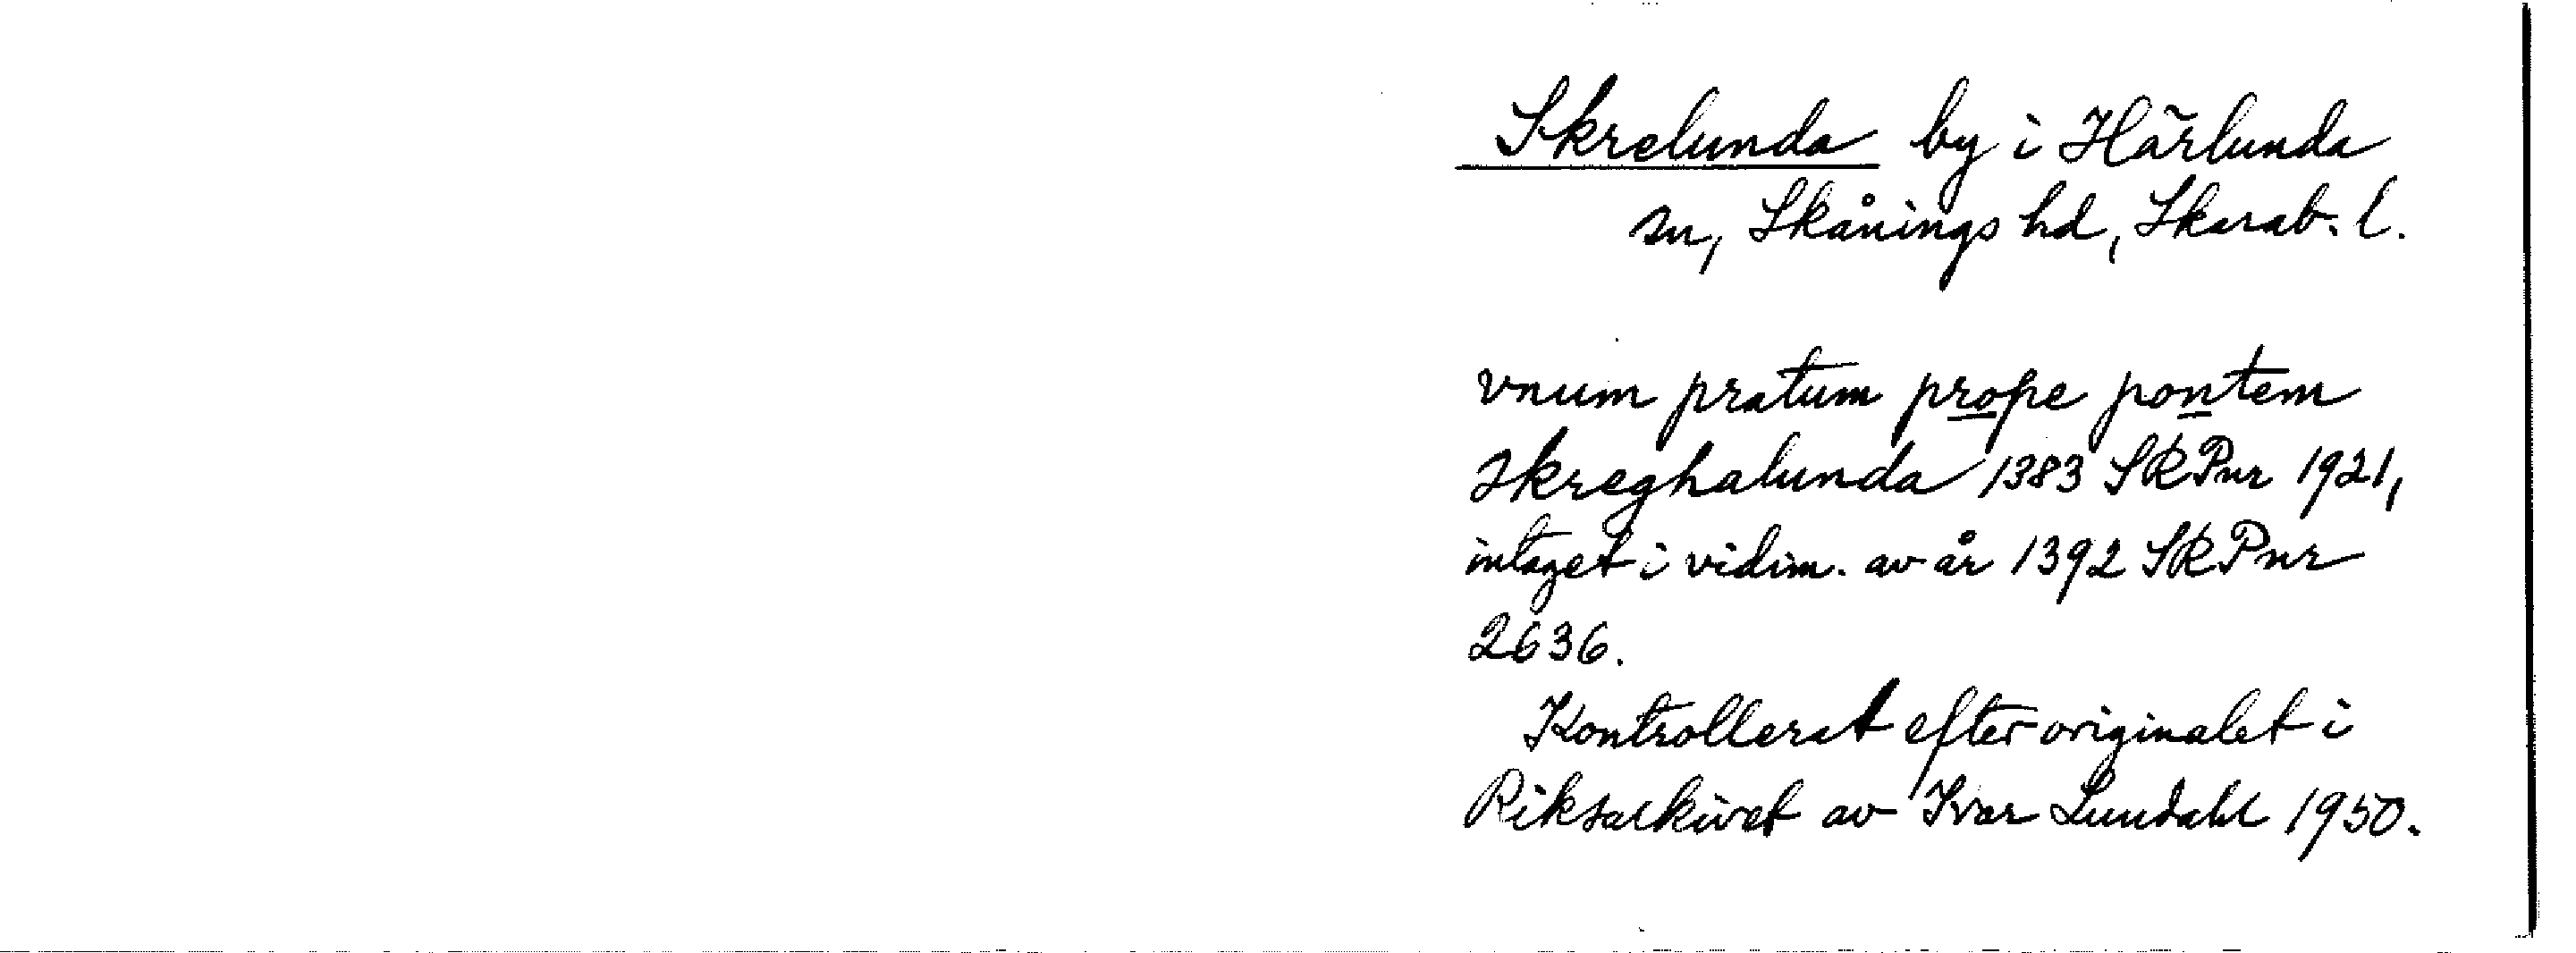 Skrelunda by i Härlunda
sn, Skånings hd, Skarab. l.
vnum pratum prope pontem
Skreghalunda 1383 SRPnr 1921,
intaget i vidim. av år 1392 SRPnr
2636.
Kontrollerat efter originalet i
Riksarkivet av Ivar Lundahl 1950.